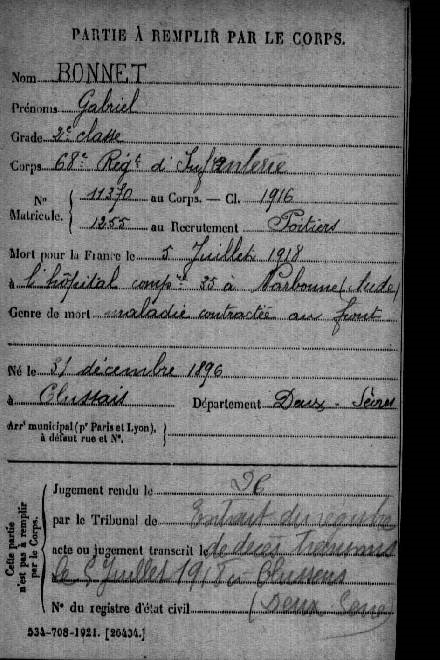 PARTIE À REMPLIR PAR LE CORPS.
Nom BONNET
Prénoms Gabriel
Grade 2e classe
Corps 68e Regt d'Infanterie
No Matricule. { 11370 au Corps. — Cl. 1916
1255 au Recrutement Poitiers
Mort pour la France le 5 Juillet 1918
à l'hôpital compre 35 à Narbonne (Aude)
Genre de mort maladie contractée au front
Né le 31 décembre 1896
à Clussais Département Deux-Sèvres
Arrt municipal (pr Paris et Lyon), à défaut rue et No. }
Cette partie n'est pas à remplir par le Corps.
Jugement rendu le
par le Tribunal de Extrait du registre
acte ou jugement transcrit le de décès transmis
le 5 Juillet 1918 à Clussais
No du registre d'état civil (Deux Sèvres
534-708-1921. [26434.]